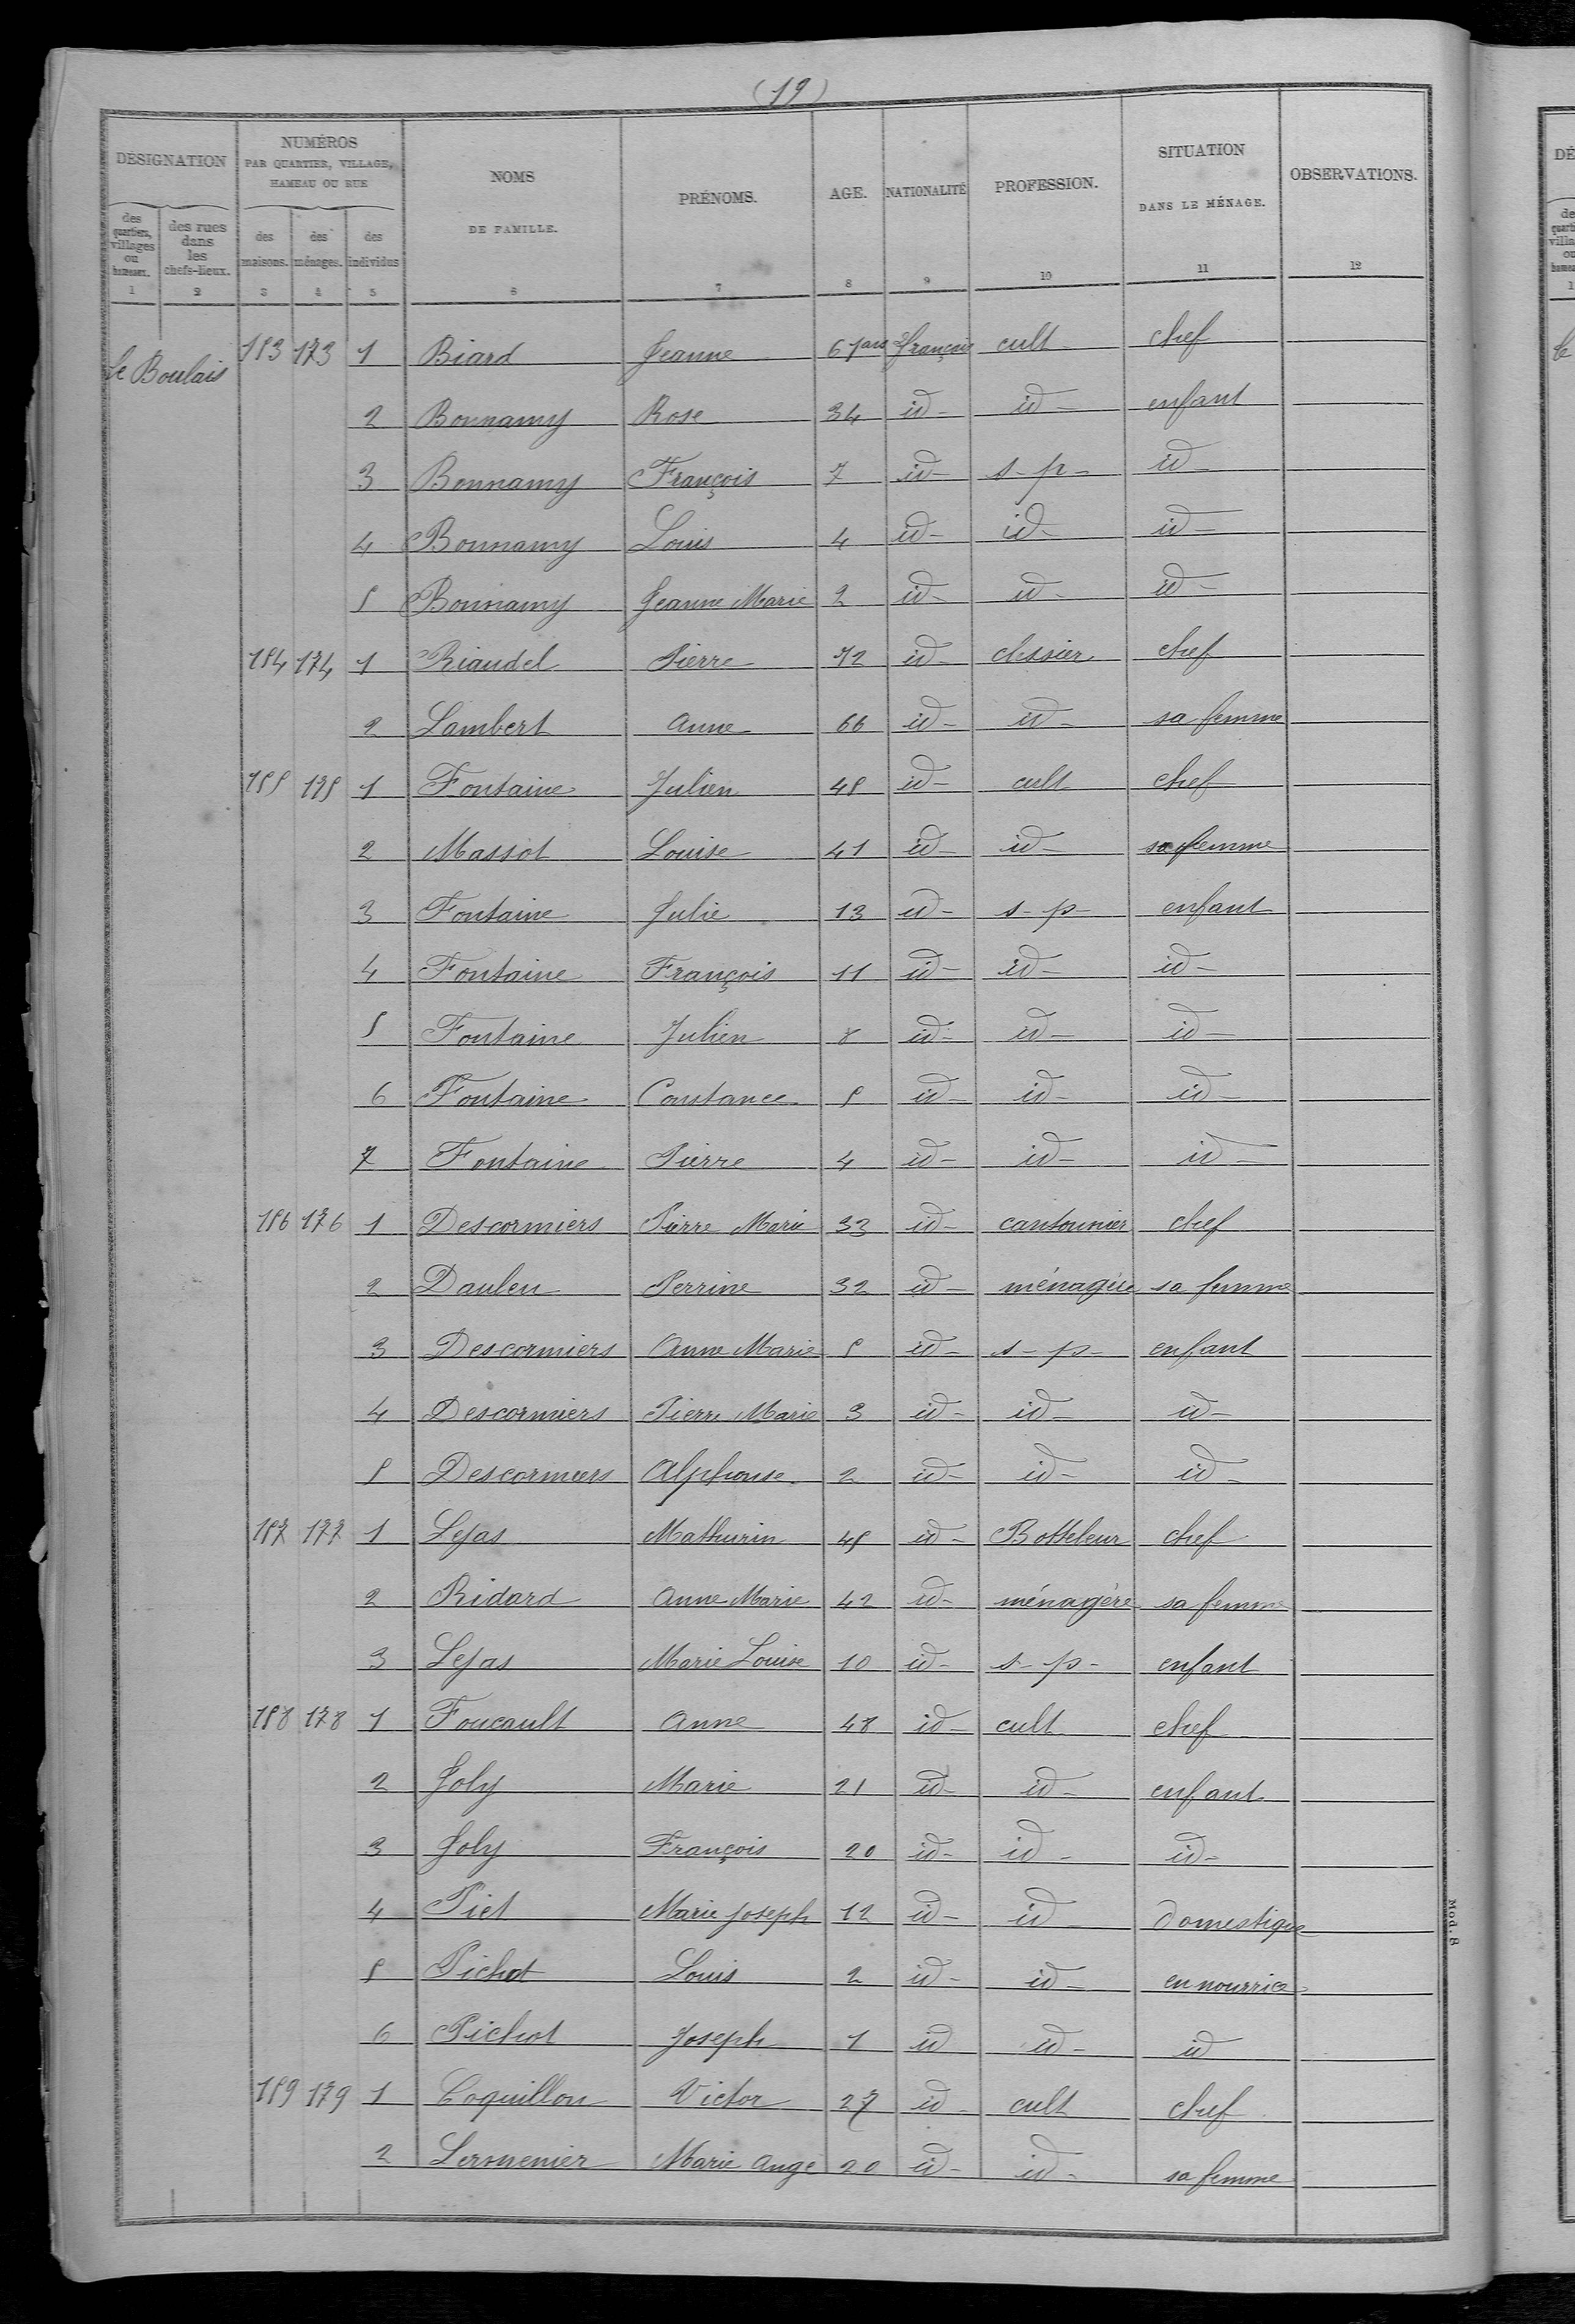 (19)
DÉSIGNATION
NUMÉROS
PAR QUARTIER, VILLAGE,
HAMEAU OU RUE
NOMS
DE FAMILLE.
PRÉNOMS.
AGE.
NATIONALITÉ
PROFESSION.
SITUATION
DANS LE MÉNAGE.
OBSERVATIONS.
des quartiers, villages ou hameaux.
des rues dans les chefs-lieux.
des maisons.
des ménages.
des individus
1 2 3 4 5 6 7 8 9 10 11 12
le Boulais 153 173 1 Biard Jeanne 61 ans française cult chef
2 Bonnamy Rose 34 id- id- enfant
3 Bonnamy François 7 id- s-p- id-
4 Bonnamy Louis 4 id- id- id-
5 Bonnamy Jeanne Marie 2 id- id- id-
154 174 1 Riaudel Pierre 72 id- chef
2 Lambert Anne 66 id- id- sa femme
155 175 1 Fontaine Julien 45 id- cult chef
2 Massot Louise 41 id- id- sa femme
3 Fontaine Julie 13 id- s-p- enfant
4 Fontaine François 11 id- id- id-
5 Fontaine Julien 8 id- id- id-
6 Fontaine Constance 5 id- id- id-
7 Fontaine Pierre 4 id- id- id-
156 176 1 Descormiers Pierre Marie 33 id- cantonnier chef
2 Dauleu Perrine 32 id- ménagère sa femme
3 Descormiers Anne Marie 5 id- s-p- enfant
4 Descormiers Pierre Marie 3 id- id- id-
5 Descormiers Alphonse 2 id- id- id-
157 177 1 Lejas Mathurin 45 id- Botteleur chef
2 Ridard Anne Marie 42 id- ménagère sa femme
3 Lejas Marie Louise 10 id- s-p- enfant
158 178 1 Foucault Anne 48 id- cult chef
2 Joly Marie 21 id- id- enfant
3 Joly François 20 id- id- id-
4 Piet Marie Joseph 12 id- id domestique
5 Pichot Louis 2 id- id- en nourrice
6 Pichot Joseph 1 id id- id
159 179 1 Coquillon Victor 27 id- cult chef
2 Marie Ange 20 id- id- sa femme
Mod. 8